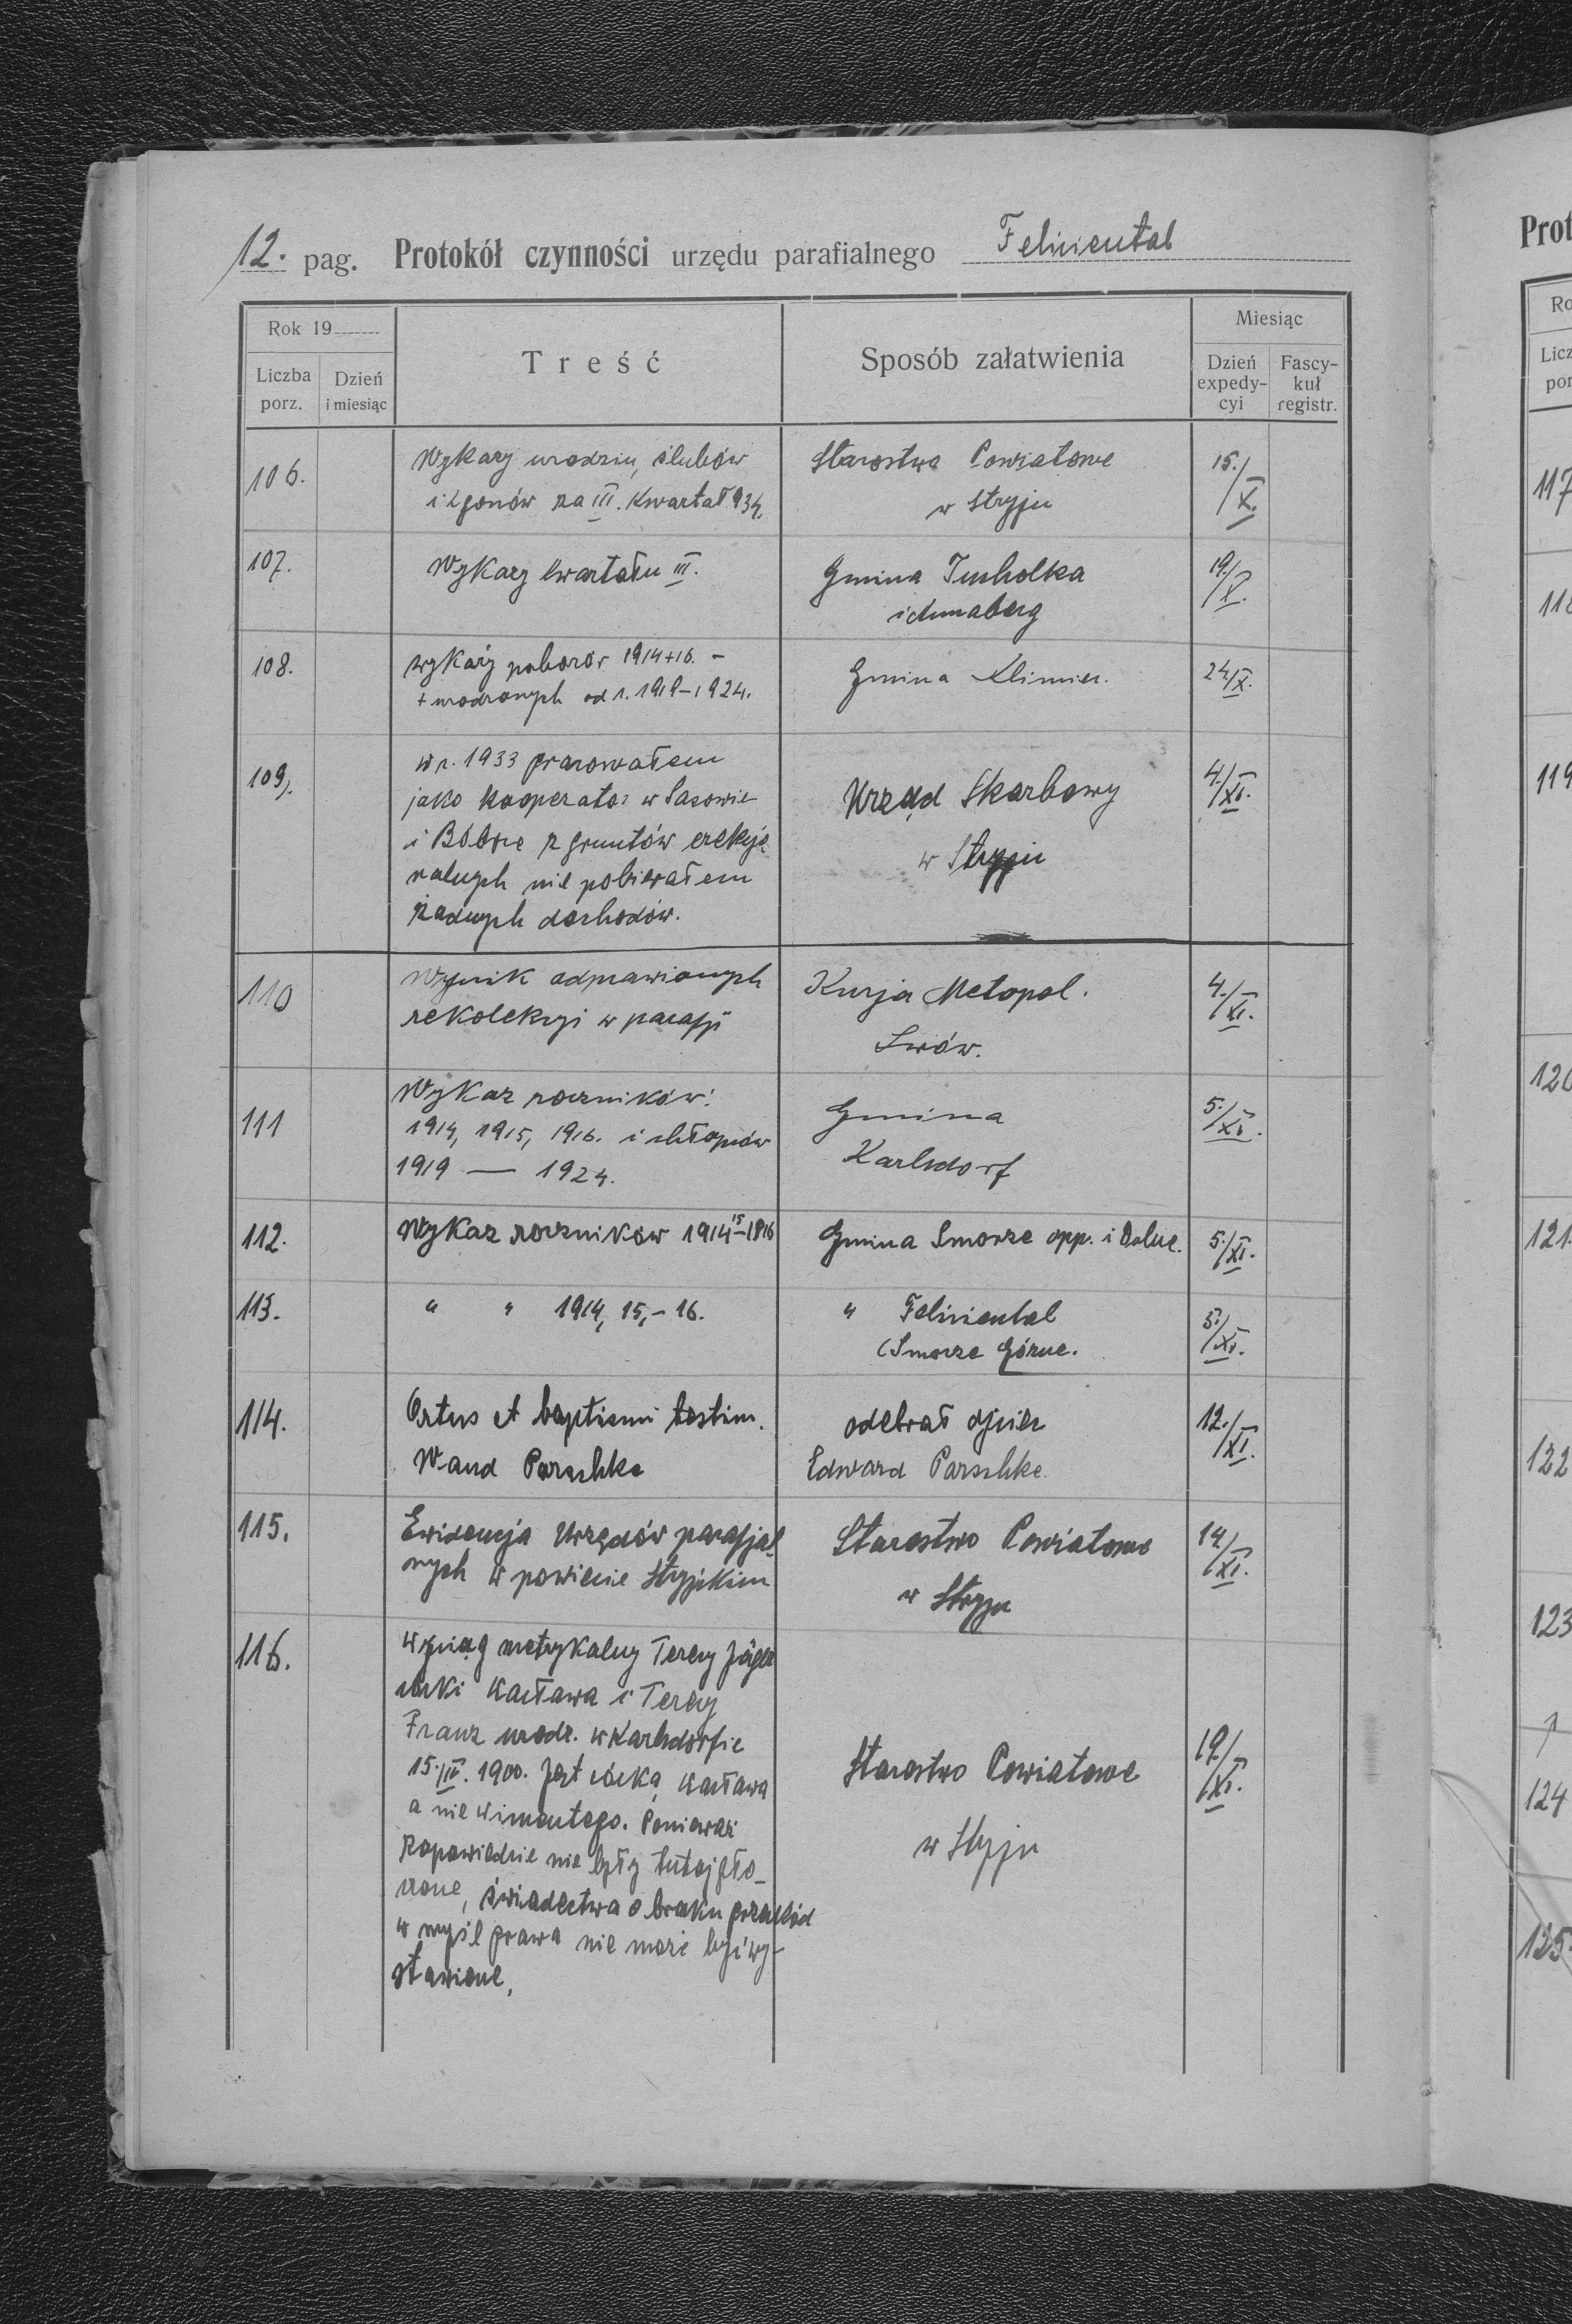 12. pag. Protokół czynności urzędu parafialnego Felicienthal
Rok 19
Liczba porz.
Dzień i miesiąc
Treść
Sposób załatwienia
Miesiąc
Dzień expedy-cyi
Fascy-kuł registr.
106.
Wykazy urodzin, ślubów
i zgonów za III. kwartał 934.
Starostwo Powiatowe
w Stryju
15./X.
107.
Wykazy kwartału III.
Gmina Tucholka
i Annaberg
19./X.
108.
wykazy poborów 1914+16. –
+ urodzonych od r. 1919–1924.
Gmina Klimiec.
24/X.
109.
w r. 1933 pracowałem
jako kooperator w Sasowie
i Bóbrce z gruntów erekcjo
nalnych nie pobierałem
żadnych dochodów.
Urząd Skarbowy
w Stryju
4./XI.
110
Wynik odprawionych
rekolekcyj w parafji
Kurja Metopol.
Lwów.
4./XI.
111
Wykaz roczników:
1914, 1915, 1916. i chłopców
1919 — 1924.
Gmina
Karlsdorf
5./XI.
112.
Wykaz roczników 1914 15–1816
Gmina Smorze opp. i Dolne.
5./XI.
113.
" " 1914, 15,–16.
" Felicienthal
(Smorze Górne.
5./XI.
114.
Ortus et baptismi testim.
Wand Parschke
odebrał ojciec
Edward Parschke
12./XI.
115.
Ewidencja Urzędów parafjal-
nych w powiecie Stryjskim
Starostwo Powiatowe
w Stryju
14/XI.
116.
wyciąg metrykalny Teresy Jäger
córki Wacława i Teresy
Franz urodz. w Karlsdorfie
15./III. 1900. Jest córką Wacława
a nie Wincentego. Ponieważ
zapowiedzie nie były tutaj gło-
szone, świadectwa o braku przeszkód
w myśl prawa nie może być wy-
stawione.
Starostwo Powiatowe
w Stryju
19./XI.
Prot
Ro
Licz
por
117
118
119
120
121.
122
123
124
125.